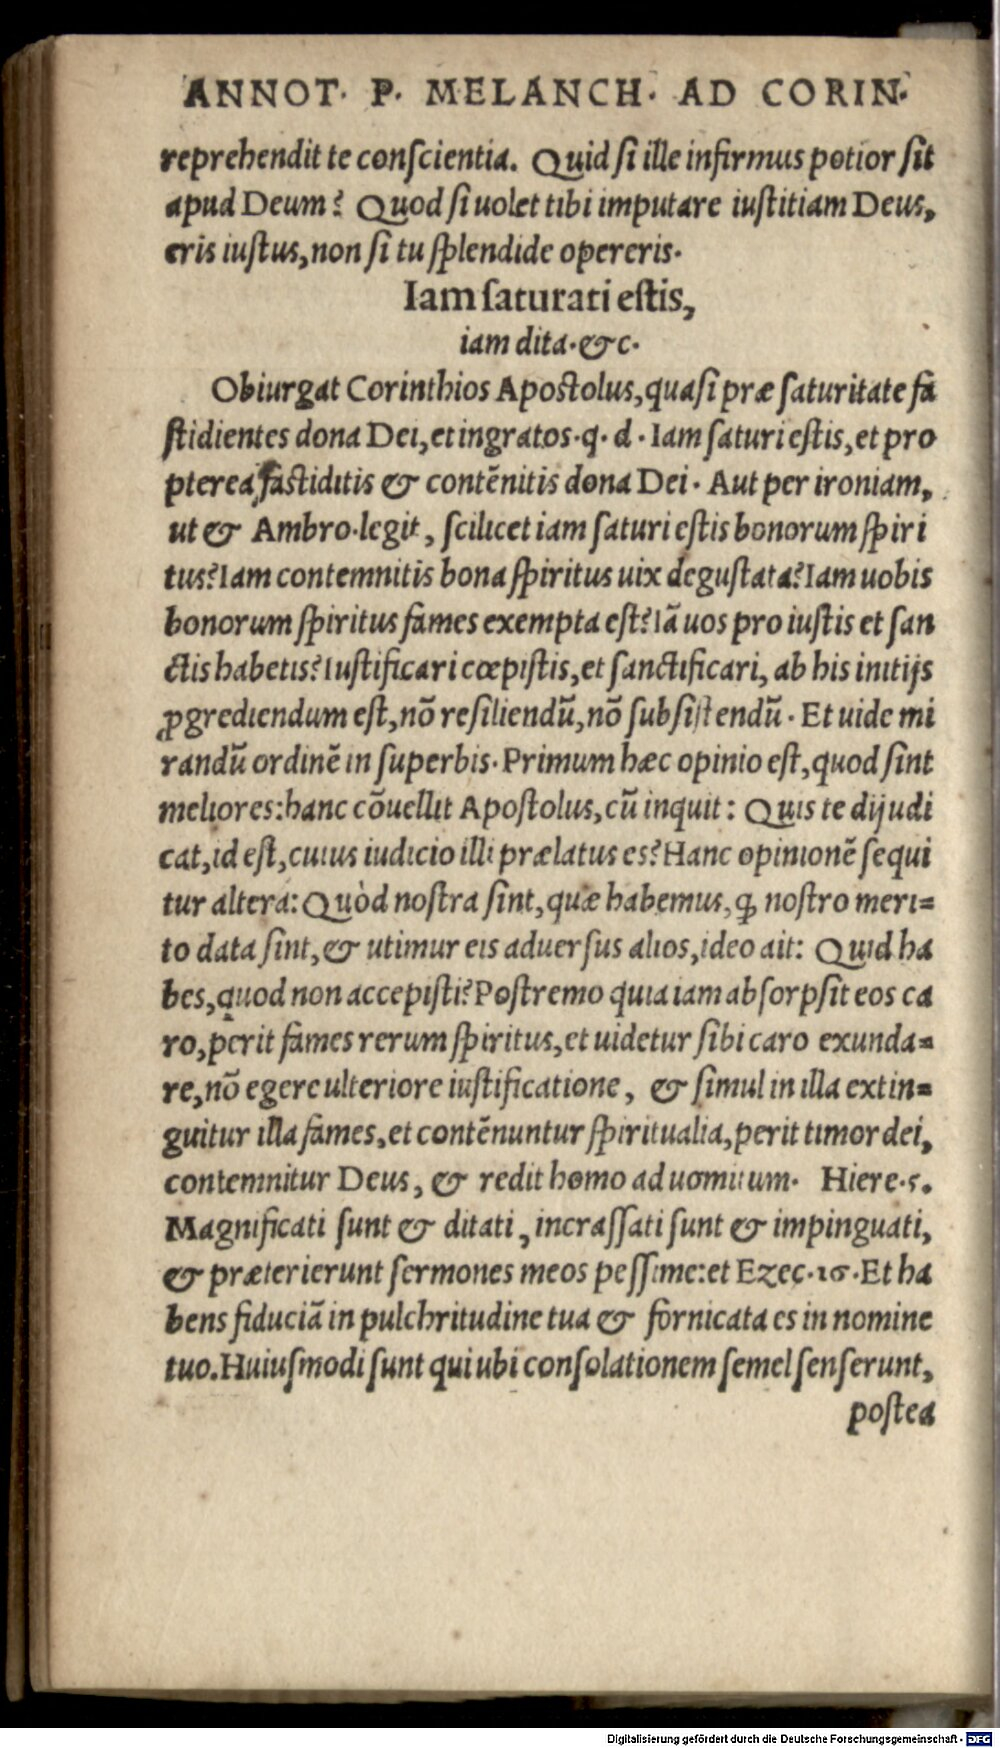 ANNOT. P. MELANCH. AD CORIN.
reprehendit te conſcientia. Quid ſi ille infirmus potior ſit
apud Deum? Quod ſi uolet tibi imputare iuſtitiam Deus,
eris iuſtus, non ſi tu ſplendide opereris.
Iam ſaturati eſtis,
iam dita. &c.
Obiurgat Corinthios Apoſtolus, quaſi præ ſaturitate fa
ſtidientes dona Dei, et ingratos. q. d. Iam ſaturi eſtis, et pro
pterea faſtiditis & contēnitis dona Dei. Aut per ironiam,
ut & Ambro. legit, ſcilicet iam ſaturi eſtis bonorum ſpiri
tus? Iam contemnitis bona ſpiritus uix deguſtata? Iam uobis
bonorum ſpiritus fames exempta eſt? Iā uos pro iuſtis et ſan
ctis habetis? Iuſtificari cœpiſtis, et ſanctificari, ab his initijs
ꝓgrediendum eſt, nō reſiliendū, nō ſubſiſtendū. Et uide mi
randū ordinē in ſuperbis. Primum hæc opinio eſt, quod ſint
meliores: hanc cōuellit Apoſtolus, cū inquit: Quis te dijudi
cat, id eſt, cuius iudicio illi prælatus es? Hanc opinionē ſequi
tur altera: Quòd noſtra ſint, quæ habemus, ꝙ noſtro meri-
to data ſint, & utimur eis aduerſus alios, ideo ait: Quid ha
bes, quod non accepiſti? Poſtremo quia iam abſorpſit eos ca
ro, perit fames rerum ſpiritus, et uidetur ſibi caro exunda-
re, nō egere ulteriore iuſtificatione, & ſimul in illa extin-
guitur illa fames, et contēnuntur ſpiritualia, perit timor dei,
contemnitur Deus, & redit homo ad uomitum. Hiere. 5.
Magnificati ſunt & ditati, incraſſati ſunt & impinguati,
& præterierunt ſermones meos peſſime: et Ezec. 16. Et ha
bens fiduciā in pulchritudine tua & fornicata es in nomine
tuo. Huiuſmodi ſunt qui ubi conſolationem ſemel ſenſerunt,
poſtea
Digitalisierung gefördert durch die Deutsche Forschungsgemeinschaft - DFG